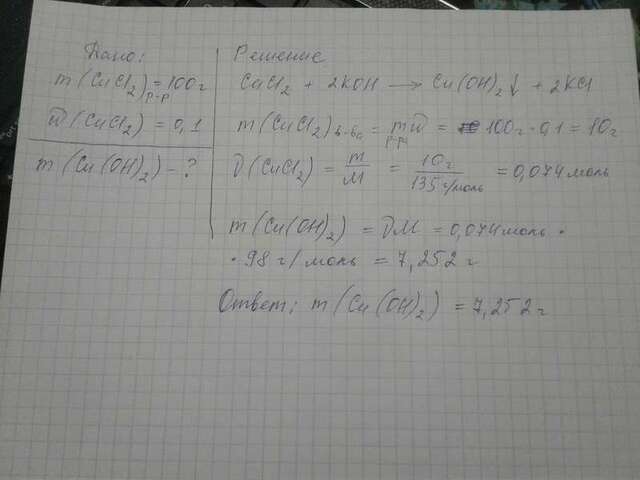 Дано:
m(CuCl2)р-р = 100г
w(CuCl2) = 0,1
m(Cu(OH)2) - ?
Решение
CuCl2 + 2KOH → Cu(OH)2↓ + 2KCl
m(CuCl2)в-ва = mр-ра w = 100г · 0,1 = 10г
ν(CuCl2) = m/M = 10г/135г/моль = 0,074 моль
m(Cu(OH)2) = νM = 0,074 моль ·
· 98 г/моль = 7,252 г
Ответ: m(Cu(OH)2) = 7,252 г